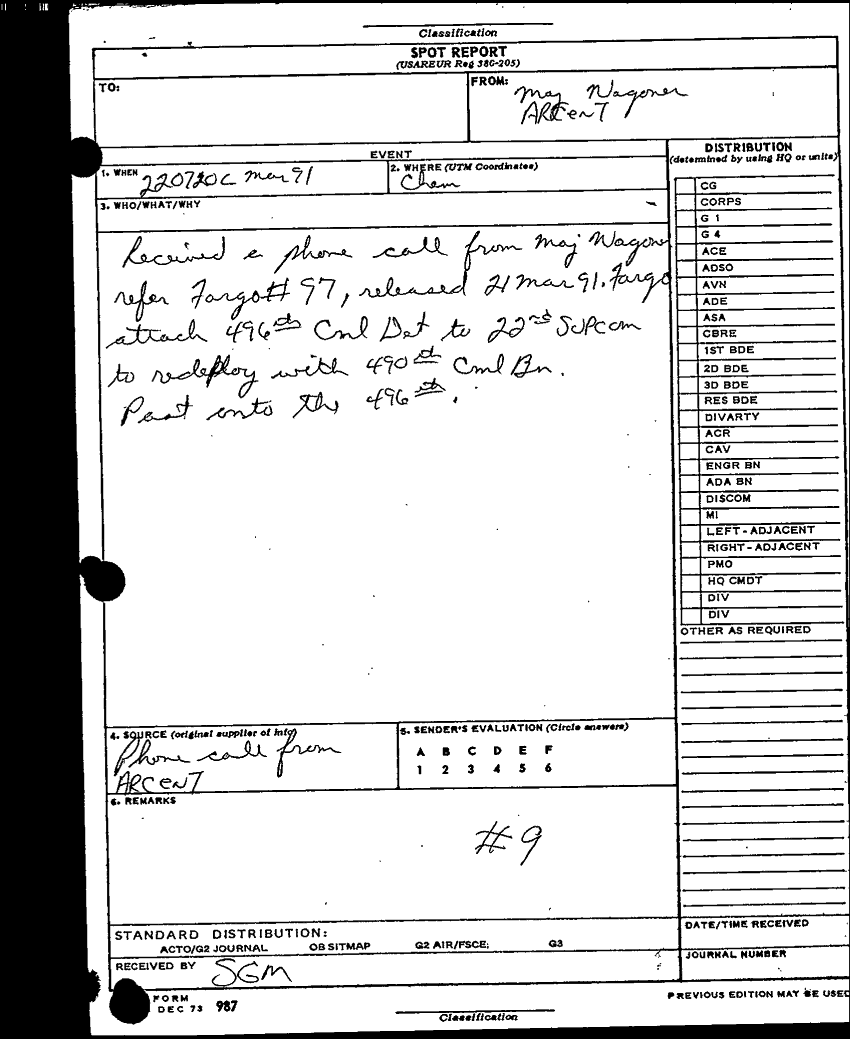 Classification
SPOT REPORT
(USAREUR Reg 380-205)
TO:
FROM:
Maj Wagoner
ARCENT
EVENT
1. WHEN 220720C Mar 91
2. WHERE (UTM Coordinates)
Chem
3. WHO/WHAT/WHY
Received a phone call from Maj Wagoner
refer Fargo# 97, released 21 Mar 91. Fargo
attach 496th Cml Det to 22nd SUPCOM
to redeploy with 490th Cml Bn.
Past onto the 496th.
4. SOURCE (original supplier of info)
Phone call from
ARCENT
5. SENDER'S EVALUATION (Circle answers)
A B C D E F
1 2 3 4 5 6
6. REMARKS
#9
STANDARD DISTRIBUTION:
ACTO/G2 JOURNAL OB SITMAP G2 AIR/FSCE; G3
RECEIVED BY SGM
FORM
DEC 73 987
Classification
DISTRIBUTION
(determined by using HQ or units)
CG
CORPS
G 1
G 4
ACE
ADSO
AVN
ADE
ASA
CBRE
1ST BDE
2D BDE
3D BDE
RES BDE
DIVARTY
ACR
CAV
ENGR BN
ADA BN
DISCOM
MI
LEFT-ADJACENT
RIGHT-ADJACENT
PMO
HQ CMDT
DIV
DIV
OTHER AS REQUIRED
DATE/TIME RECEIVED
JOURNAL NUMBER
PREVIOUS EDITION MAY BE USED